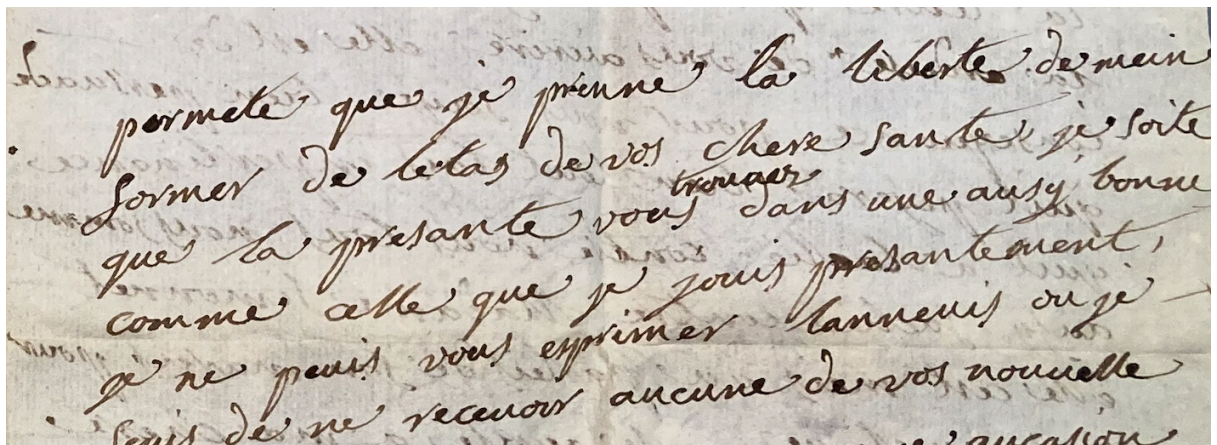 permete que je prenne la liberte de mein
former de letas de vos chere sante, je soite
que la presante vous trouaer dans une ausy bonne
comme celle que je jouis presantement,
je ne peuis vous exprimer lanneuis ou je
suis de ne recevoir aucune de vos nouvelle
aucasion